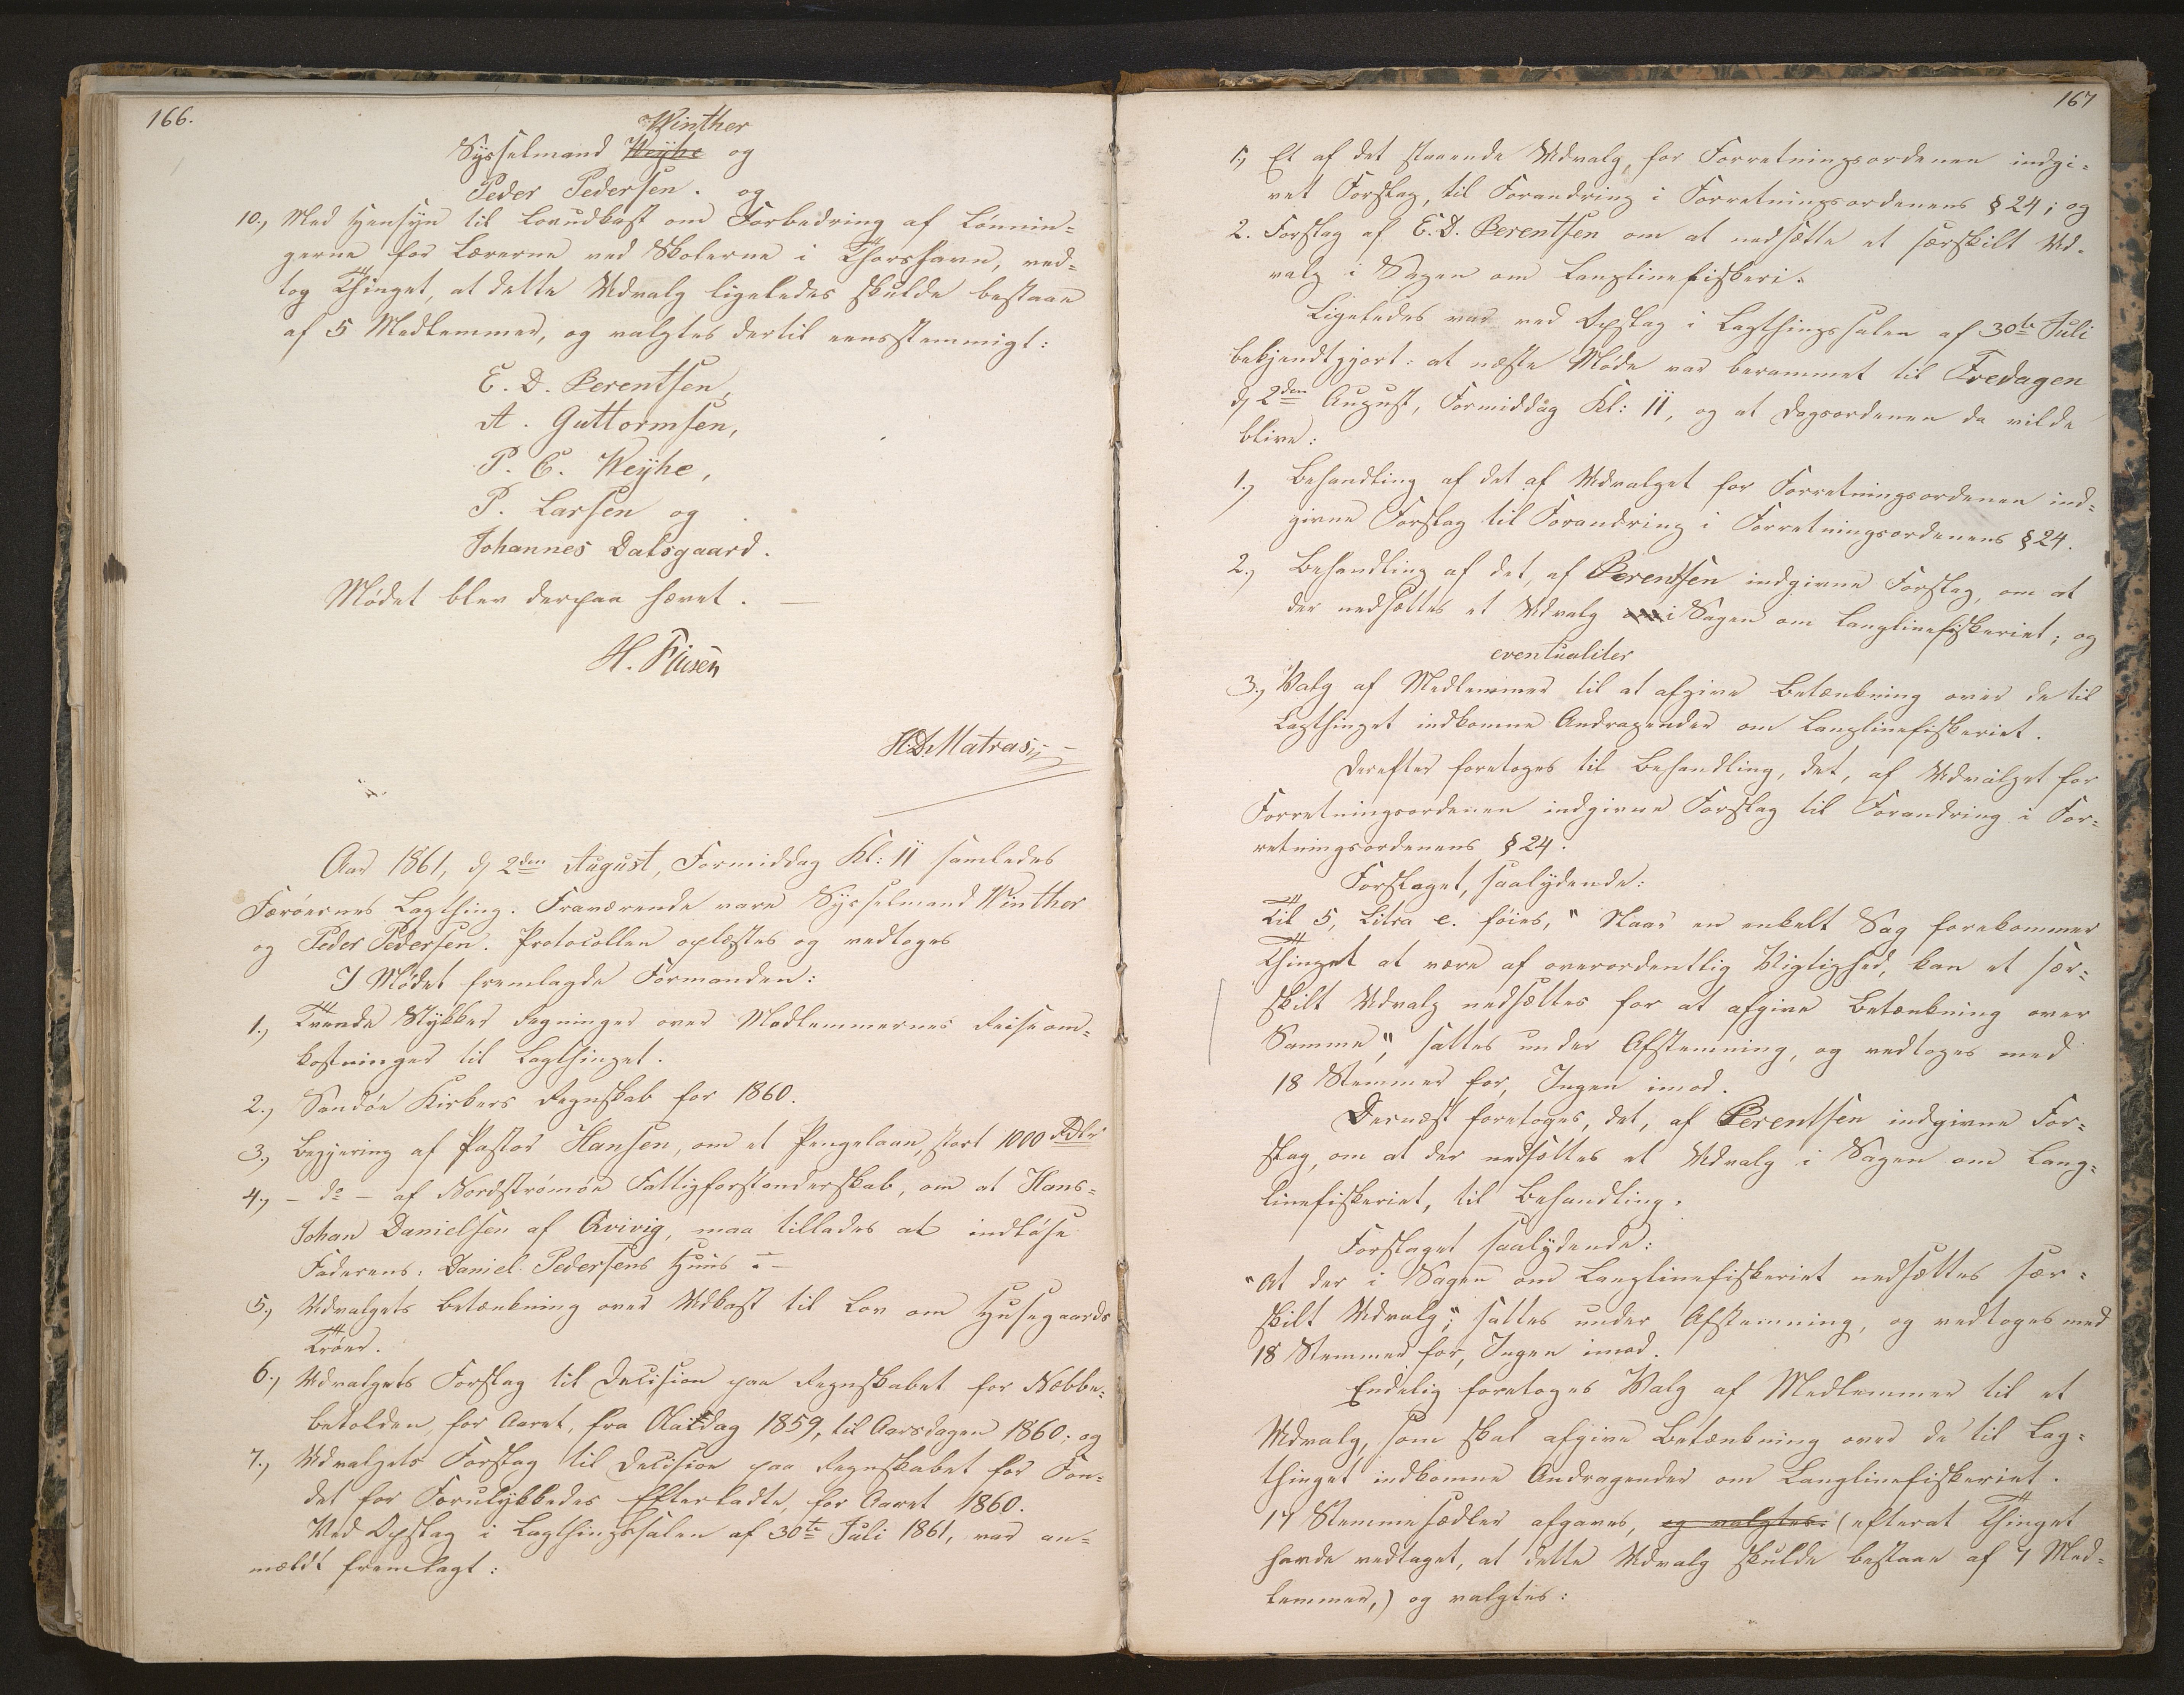 166.
Winther
Sysselmand Weÿhe og
Peder Pedersen. og
10., Med Hensyn til Lovudkast om Forbedring af Lønnin-
gerne for Lærerne ved Skolerne i Thorshavn, ved-
tog Thinget, at dette Udvalg ligeledes skulde bestaae
af 5 Medlemmer, og valgtes dertil eensstemmigt:
E. D. Berentsen,
A. Guttormsen,
P. C. Weÿhe,
P. Larsen og
Johannes Dalsgaard.
Mødet blev derpaa hævet. —
H. Tillisch
H. D. Matras
Aar 1861, d) 2den August, Formiddag Kl: 11 samledes
Færøernes Lagthing. Fraværende vare Sysselmand Winther
og Peder Pedersen. Protocollen oplæstes og vedtoges
I Mødet fremlagde Formanden:
1., Trende Stykker Regninger over Medlemmernes Reiseom-
kostninger til Lagthinget.
2., Sandøe Kirkers Regnskab for 1860.
3., Begjering af Pastor Hansen, om et Pengelaan, stort 1000 Rdlr
4., — do — af Nordstrømøe Fattigforstanderskab, om at Hans-
Johan Danielsen af Qvivig, maa tillades at indløse
Faderens: Daniel Pedersens Huus. —
5., Udvalgets Betænkning over Udkast til Lov om Husegaards
Trøer.
6., Udvalgets Forslag til Decision paa Regnskabet for Næbbe-
betolden, for Aaret, fra Olaidag 1859, til Aarsdagen 1860; og
7., Udvalgets Forslag til Decision paa Regnskabet for Fon-
det for Forulykkedes Efterladte, for Aaret 1860.
Ved Opslag i Lagthingssalen af 30te Juli 1861, var an-
mældt fremlagt:
167
1., Et af det staaende Udvalg, for Forretningsordenen indgi-
vet Forslag, til Forandring i Forretningsordenens § 24; og
2. Forslag af E. D. Berentsen om at nedsætte et særskilt Ud-
valg i Sagen om Langlinefiskeri.
Ligeledes var ved Opslag i Lagthingssalen af 30te Juli
bekjendtgjort: at næste Møde var berammet til Fredagen
d) 2den August, Formiddag Kl: 11, og at Dagsordenen da vilde
blive:
1., Behandling af det af Udvalget for Forretningsordenen ind-
givne Forslag til Forandring i Forretningsordenens § 24.
2., Behandling af det, af Berentsen indgivne Forslag, om at
der nedsættes et Udvalg i Sagen om Langlinefiskeriet; og
eventualiter
3., Valg af Medlemmer til at afgive Betænkning over de til
Lagthinget indkomne Andragender om Langlinefiskeriet.
Derefter foretoges til Behandling, det, af Udvalget for
Forretningsordenen indgivne Forslag til Forandring i For-
retningsordenens § 24.
Forslaget, saalydende:
Til 5, Litra e. føies, "Naar en enkelt Sag forekommer
Thinget at være af overordentlig Vigtighed, kan et sær-
skilt Udvalg nedsættes for at afgive Betænkning over
Samme", sattes under Afstemning, og vedtoges med
18 Stemmer for, Ingen imod.
Dernæst foretoges, det, af Berentsen indgivne For-
slag, om at der nedsættes et Udvalg i Sagen om Lang-
linefiskeriet, til Behandling.
Forslaget saalydende:
"At der i Sagen om Langlinefiskeriet nedsættes sær-
skilt Udvalg", sattes under Afstemning, og vedtoges med
18 Stemmer for, Ingen imod.
Endelig foretoges Valg af Medlemmer til et
Udvalg, som skal afgive Betænkning over de til Lag-
thinget indkomne Andragender om Langlinefiskeriet.
17 Stemmesedler afgaves, og valgtes: (efterat Thinget
havde vedtaget, at dette Udvalg skulde bestaae af 7 Med-
lemmer,) og valgtes: